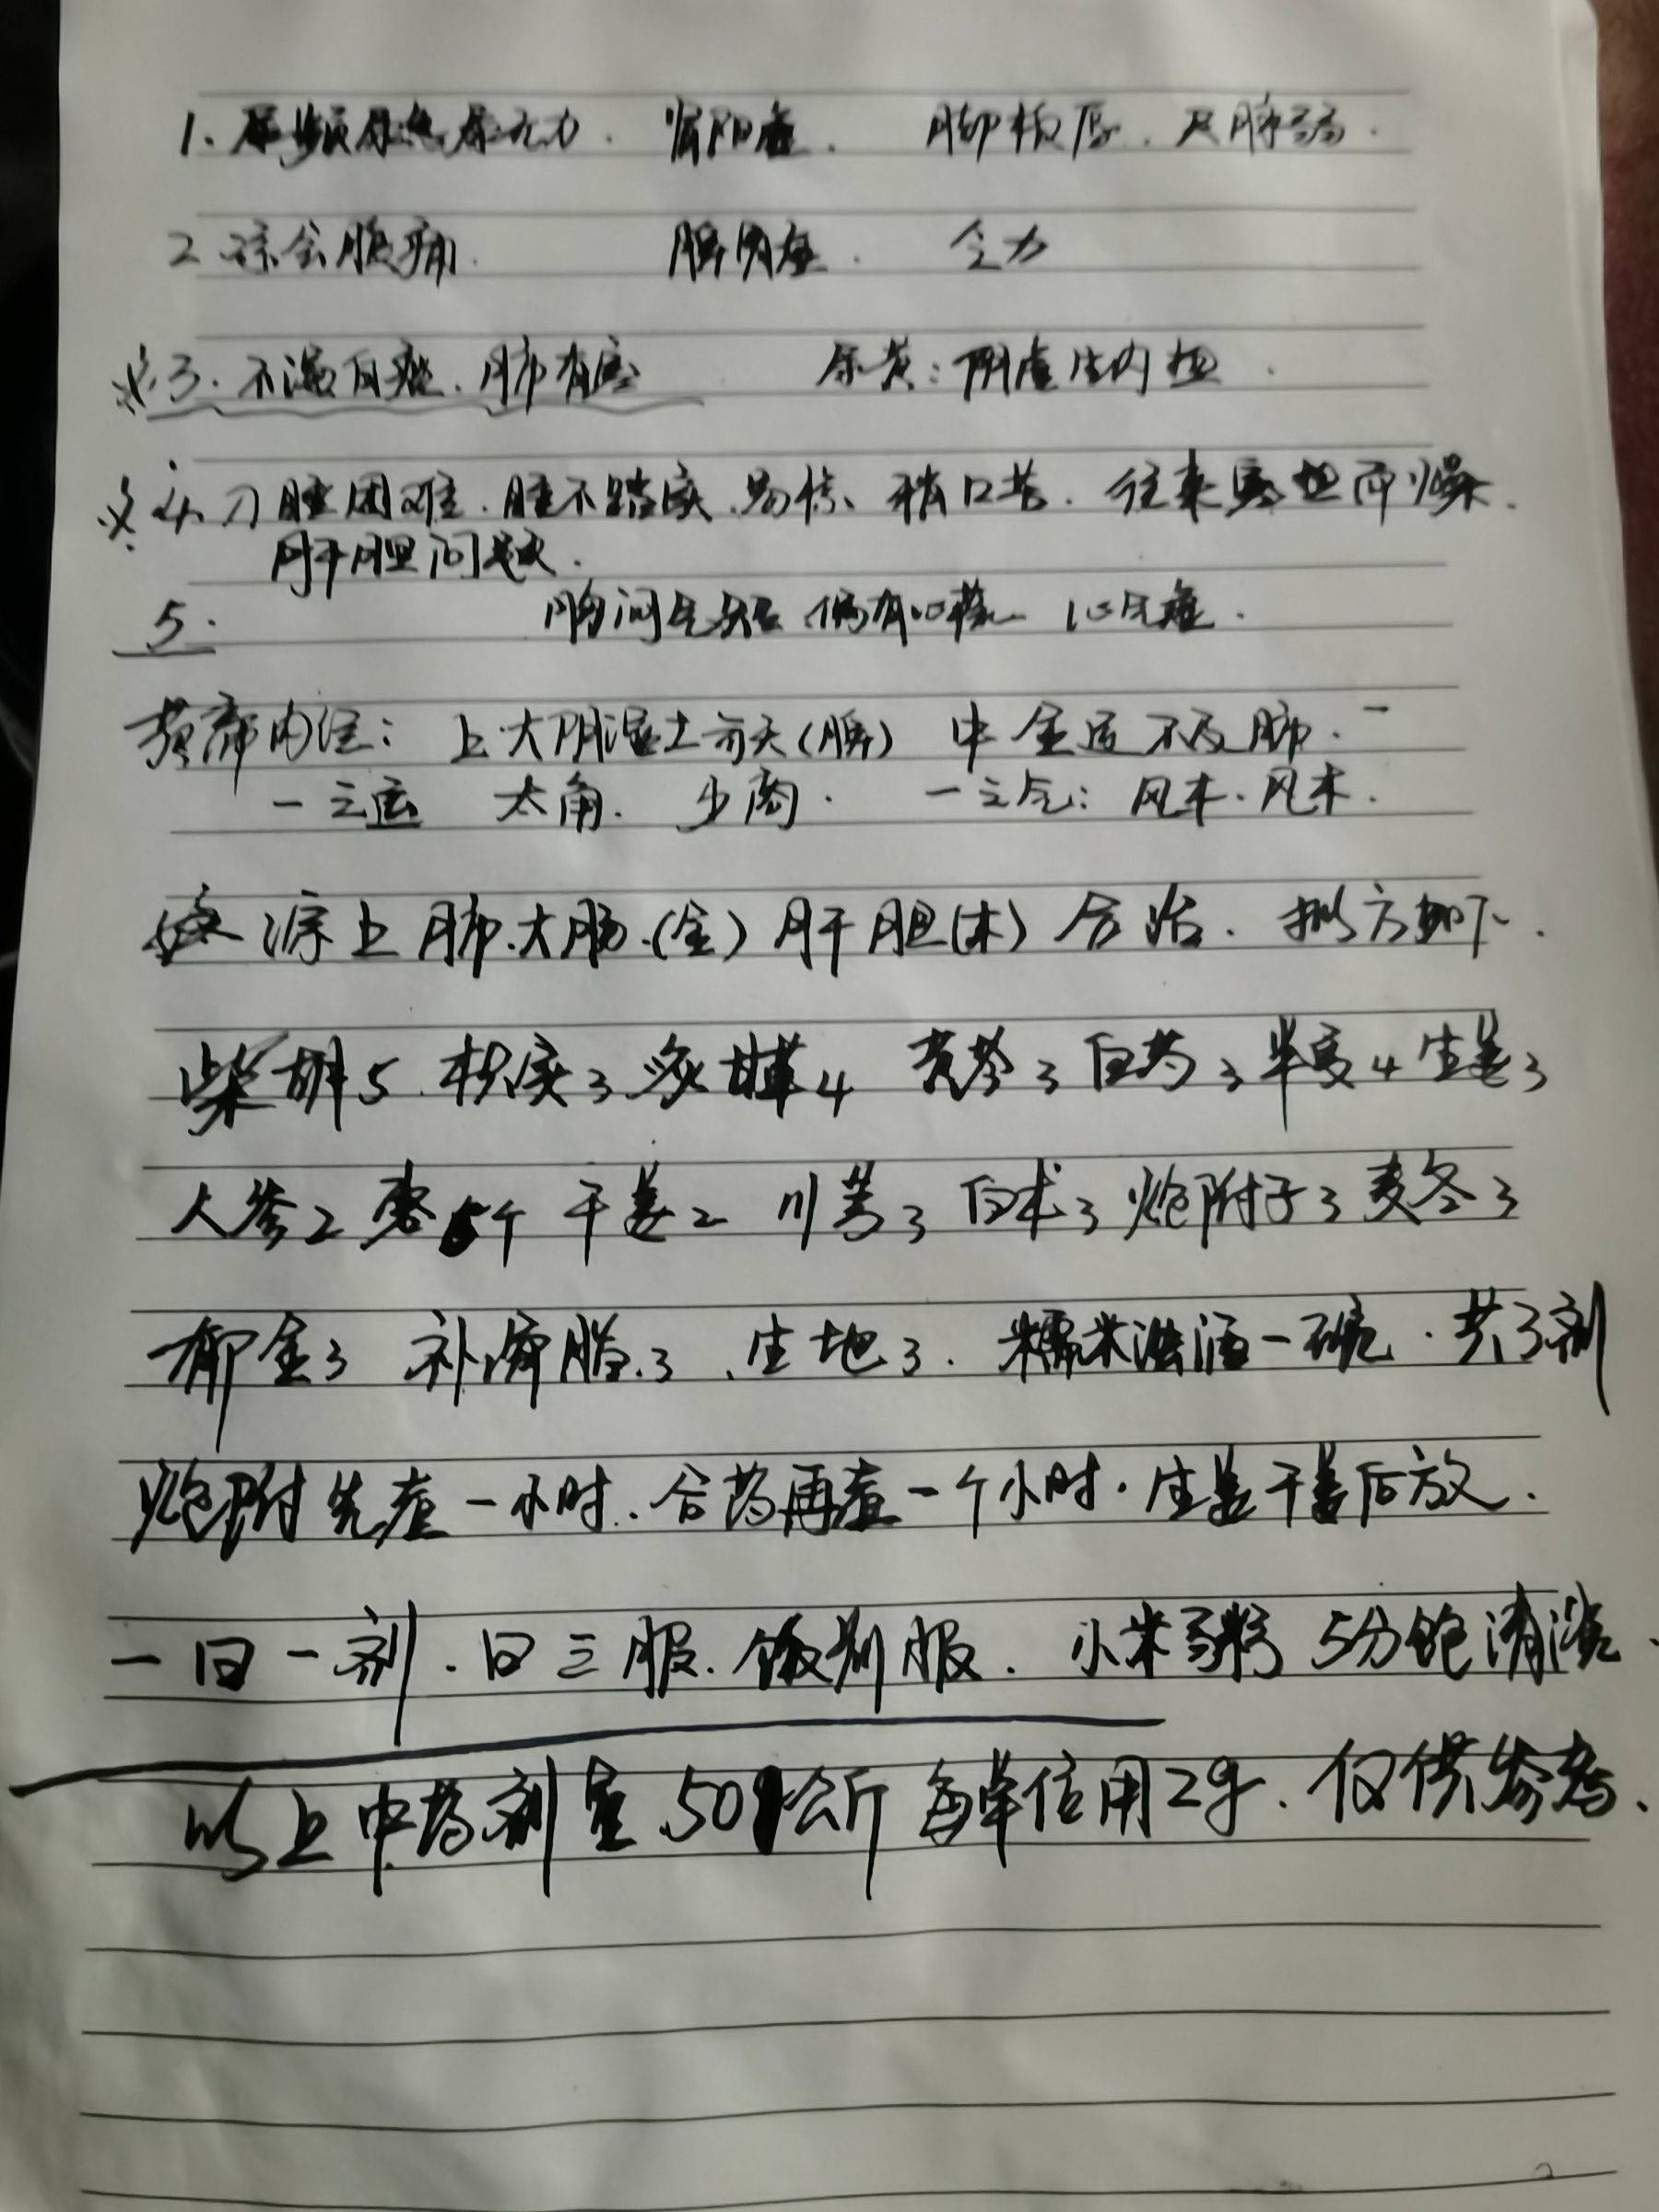 1. 尿频尿急尿无力. 肾阳虚. 脚板厚. 尺脉弱.
2 综合腹痛. 脾胃虚. 乏力
3. 不温自痰. 肺有寒 尿黄: 阴虚生内热.
4. 入睡困难. 睡不踏实. 易惊、稍口苦. 往来寒热而燥.
肝胆问题.
5. 胸闷气短 偶有心慌 心气虚.
黄帝内经: 上太阴湿土司天(脾) 中金运不及 肺. 一
一之运 太角. 少商. 一之气: 风木. 风木.
综上 肺.大肠.(金) 肝胆(木) 合治. 拟方如下.
柴胡5. 枳实3 炙甘草4 黄芩3 白芍3 半夏4 生姜3
人参2 枣5个 干姜2 川芎3 白术3 炮附子3 麦冬3
郁金3 补骨脂.3 、生地3. 糯米酒一碗. 共3剂
炮附先煮一小时. 合药再煮一个小时. 生姜干姜后放.
一日一剂. 日三服. 饭前服. 小米粥 5分饱 清淡.
以上中药剂量.50公斤 每单位用2g. 仅供参考.